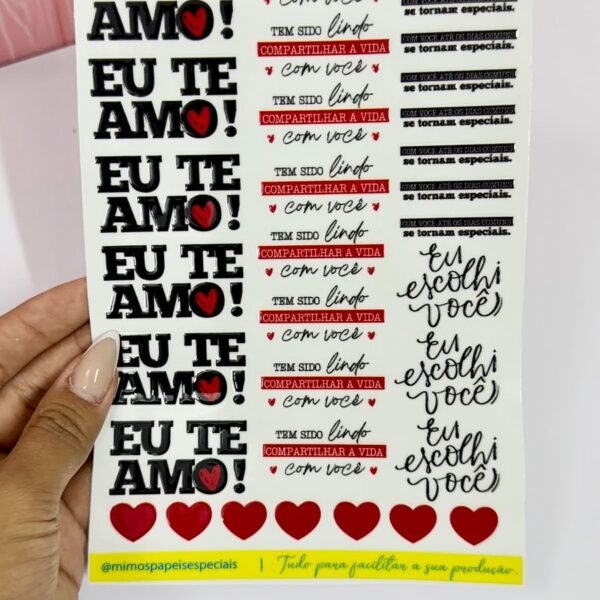 AMO!
EU TE
AMO!
EU TE
AMO!
EU TE
AMO!
EU TE
AMO!
EU TE
AMO!
com você
TEM SIDO lindo
COMPARTILHAR A VIDA
com você
TEM SIDO lindo
COMPARTILHAR A VIDA
com você
TEM SIDO lindo
COMPARTILHAR A VIDA
com você
TEM SIDO lindo
COMPARTILHAR A VIDA
com você
TEM SIDO lindo
COMPARTILHAR A VIDA
com você
TEM SIDO lindo
COMPARTILHAR A VIDA
com você
TEM SIDO lindo
COMPARTILHAR A VIDA
com você
se tornam especiais.
COM VOCÊ ATÉ OS DIAS COMUNS
se tornam especiais.
COM VOCÊ ATÉ OS DIAS COMUNS
se tornam especiais.
COM VOCÊ ATÉ OS DIAS COMUNS
se tornam especiais.
COM VOCÊ ATÉ OS DIAS COMUNS
se tornam especiais.
COM VOCÊ ATÉ OS DIAS COMUNS
se tornam especiais.
COM VOCÊ ATÉ OS DIAS COMUNS
se tornam especiais.
Eu
escolhi
você
Eu
escolhi
você
Eu
escolhi
você
@mimospapeisespeciais | Tudo para facilitar a sua produção.